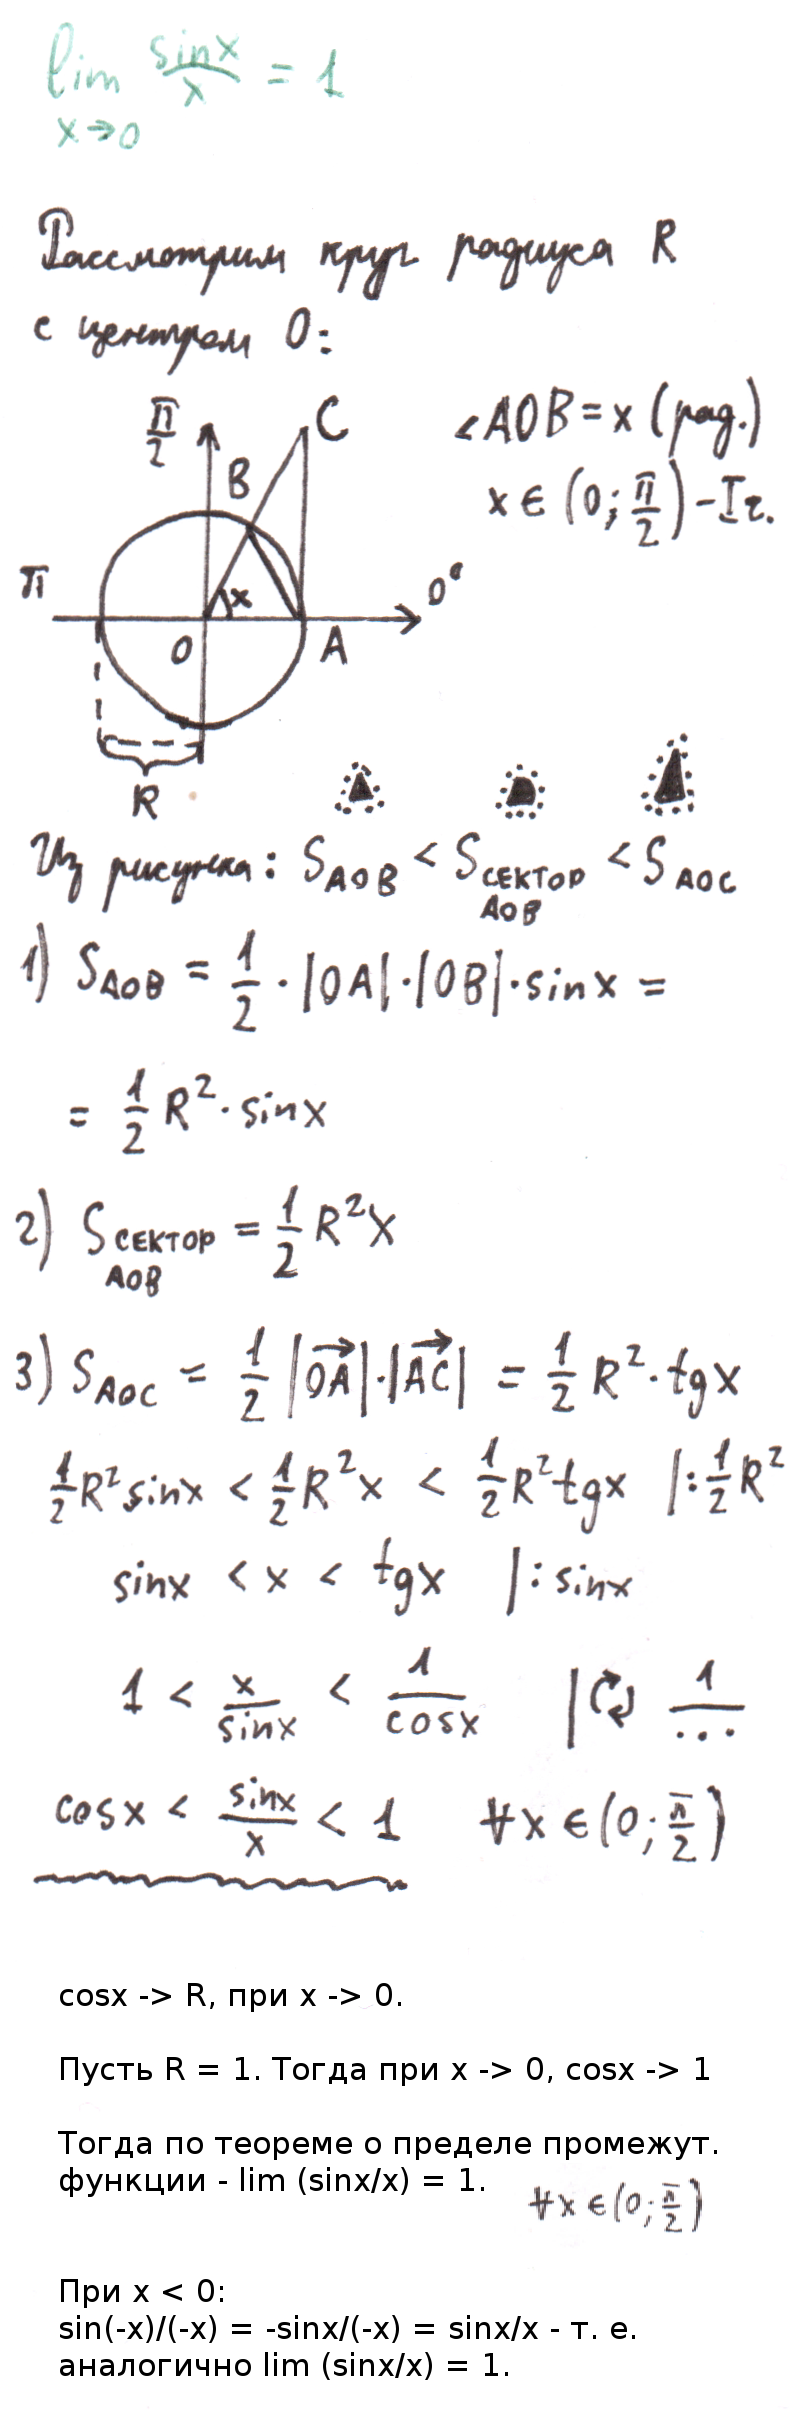 lim sinx/x = 1
x→0
Рассмотрим круг радиуса R
с центром O:
π/2
C
∠AOB = x (рад.)
B
x ∈ (0; π/2) - I г.
π
x
0°
O
A
R
Из рисунка: S AOB < S СЕКТОР AOB < S AOC
1) S AOB = 1/2 · |OA| · |OB| · sinx =
= 1/2 R² · sinx
2) S СЕКТОР AOB = 1/2 R²x
3) S AOC = 1/2 |OA→| · |AC→| = 1/2 R² · tgx
1/2 R² sinx < 1/2 R² x < 1/2 R² tgx |: 1/2 R²
sinx < x < tgx |: sinx
1 < x/sinx < 1/cosx | ↻ 1/...
cosx < sinx/x < 1 ∀x ∈ (0; π/2)
cosx -> R, при x -> 0.
Пусть R = 1. Тогда при x -> 0, cosx -> 1
Тогда по теореме о пределе промежут.
функции - lim (sinx/x) = 1.
∀x ∈ (0; π/2)
При x < 0:
sin(-x)/(-x) = -sinx/(-x) = sinx/x - т. е.
аналогично lim (sinx/x) = 1.